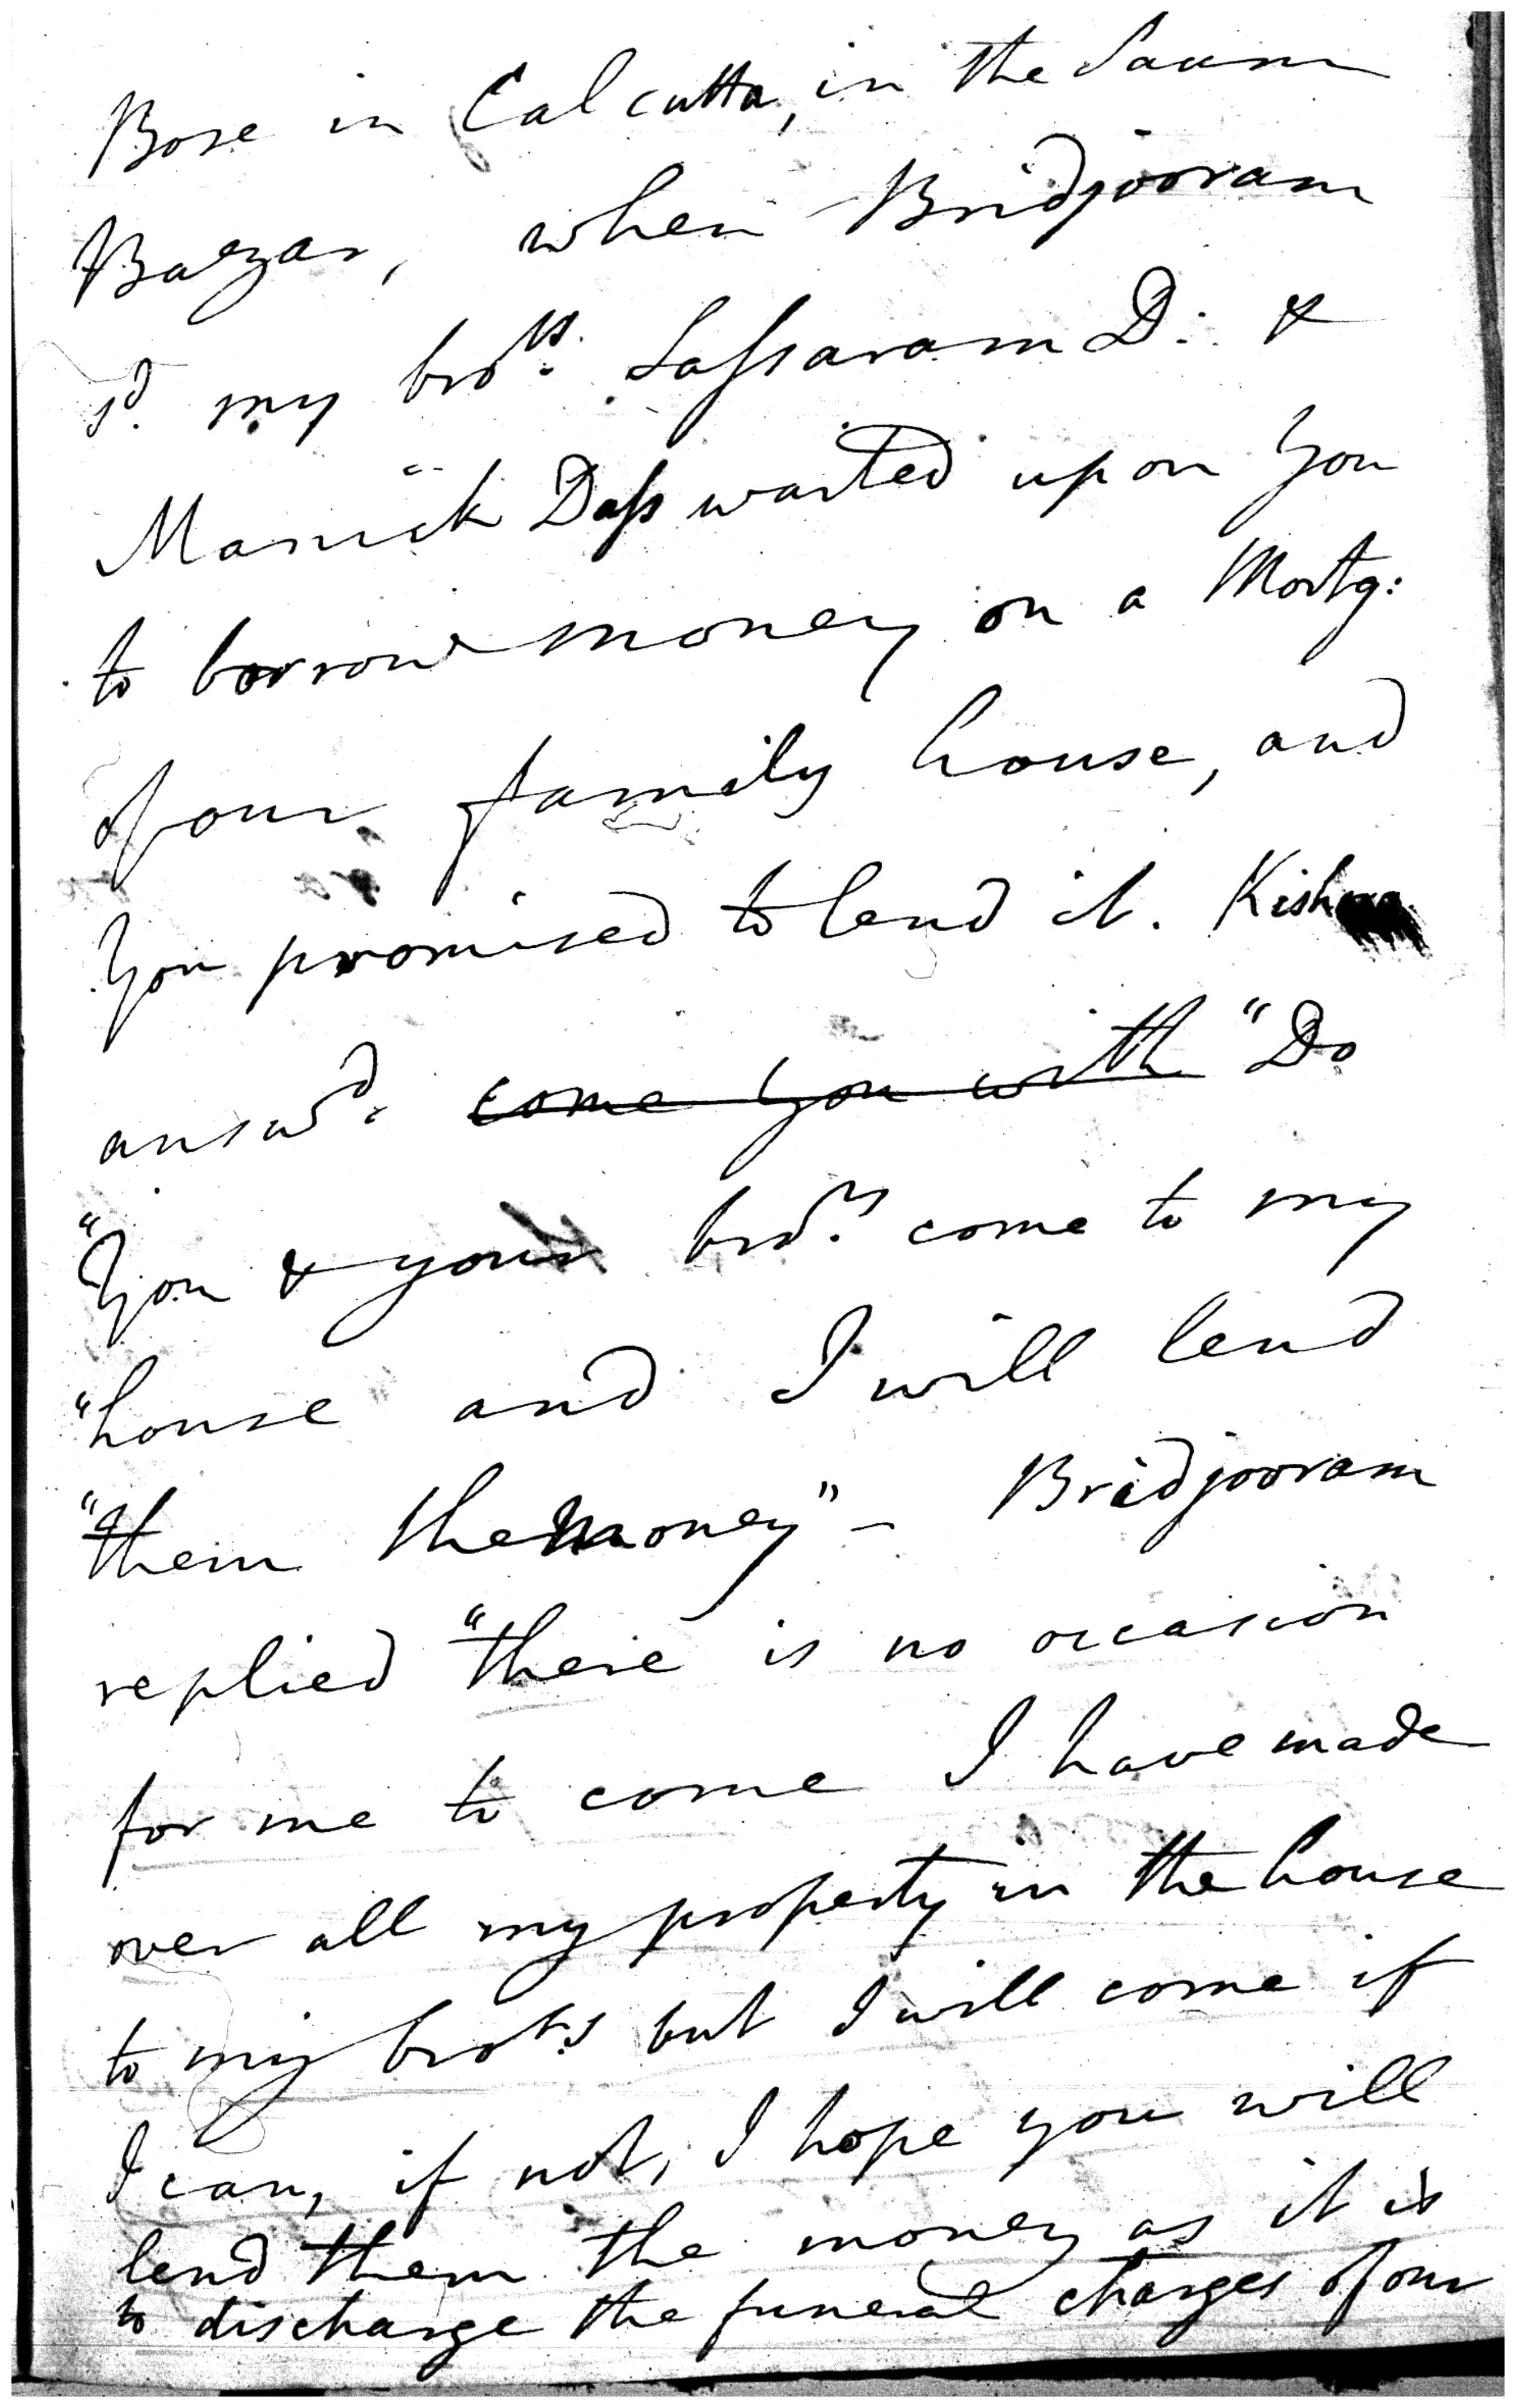 Bose in Calcutta, in the Saum
Bazar, when Bridjooram
sd. my brors. Sassaram D: &
Manick Dass waited upon You
to borrow money on a Mortg:
of our family house, and
You promised to lend it. Kishen
answd. come you with "Do
"You & your bros. come to my
"house and I will lend
"them the money" – Bridjooram
replied "there is no occasion
for me to come I have made
over all my property in the house
to my brors but I will come if
I can, if not, I hope you will
lend them the money as it is
to discharge the funeral charges of our